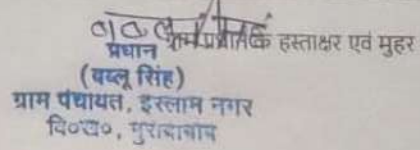 ग्राम प्रधान के हस्ताक्षर एवं मुहर
प्रधान
(बब्लू सिंह)
ग्राम पंचायत, इस्लाम नगर
वि०ख०, मुरादाबाद